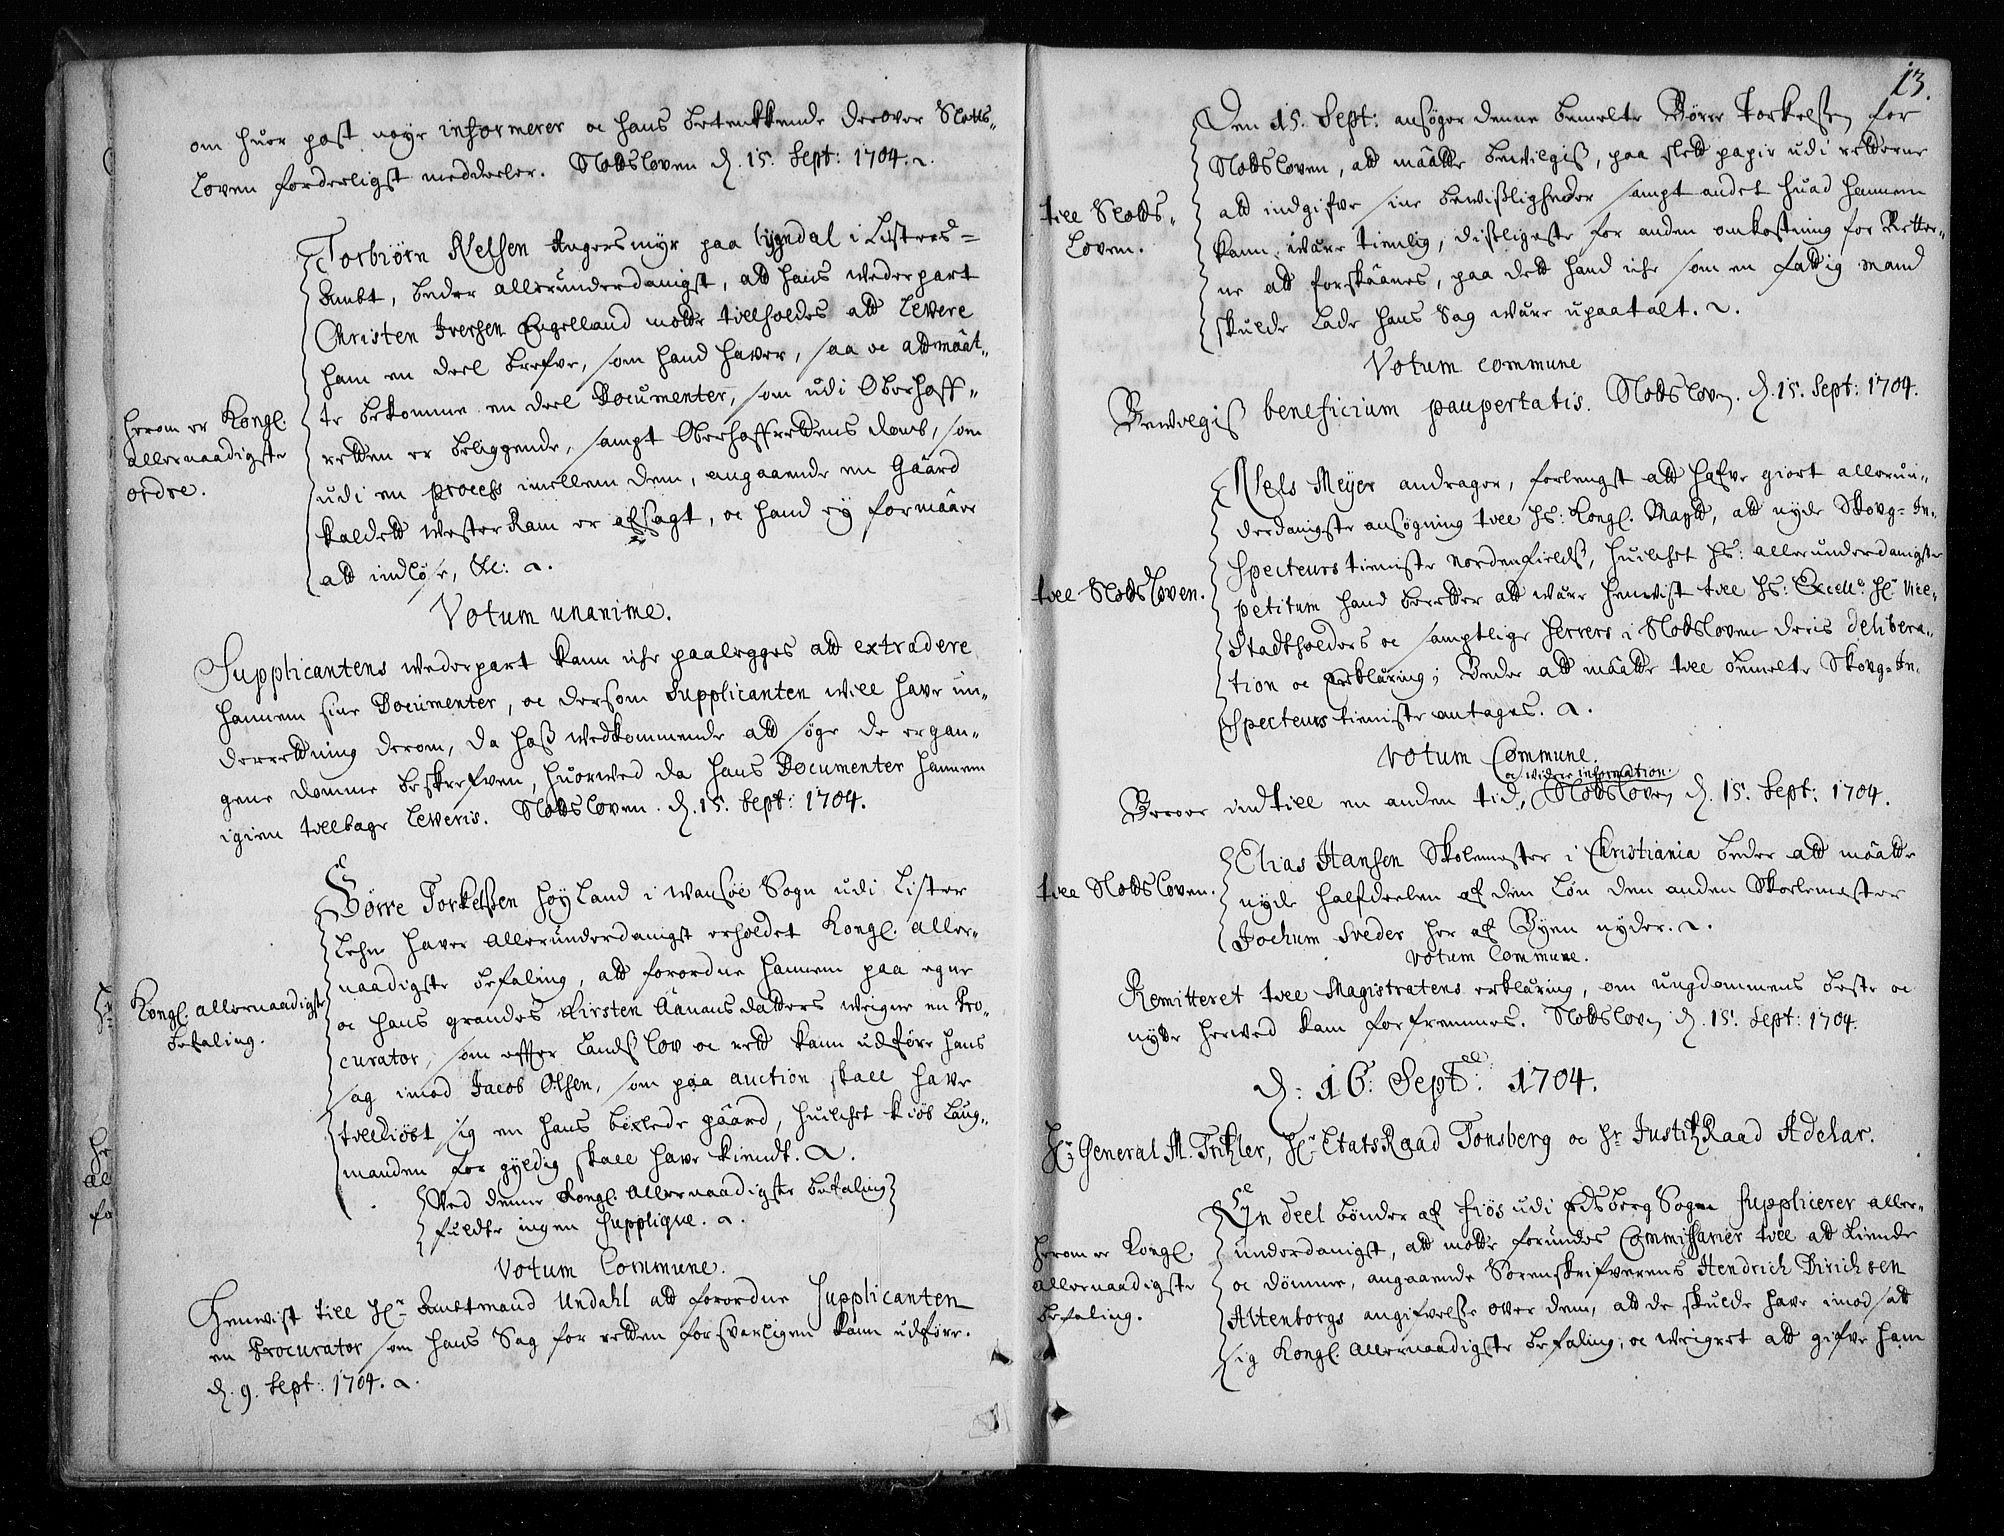 om huer post nøye informerer oc hans betenkende derover Slotts-
Loven forderligst meddeeler. Slottsloven d. 15. Sept: 1704.
Torbiörn Nelsen Angersmyr paa Lygndal i Listers-
Ambt, beder allerunderdanigst, att hans wederpart
Christen Iversen Engelland motte tillholdes att levere
ham en deel brefve, som hand haver, saa oc att maat-
te bekomme en deel Documenter, som udi Oberhoff-
retten er beliggende, sampt Oberhoffrettens domb, som
udi en process imellem dem, angaaende en Gaard
kaldett Wester Ram er afsagt, oc hand ey formaar
att indløse, &c:
herom er Kongl.
allernaadigste
ordre.
Votum unanime.
Supplicantens wederpart kand iche paalegges att extradere
hannem sine Documenter, oc dersom Supplicanten will have un-
derrettning derom, da hoss wedkommende att søge de ergan-
gene domme beskrefven, huorwed da hans Documenter hannem
igien tilbage leveris. Slottsloven d. 15. Sept: 1704.
Børre Torkelsen Høyland i Wansöe Sogn udi Lister
Lehn haver allerunderdanigst erholdet Kongl. aller-
naadigste befaling, att forordne hannem paa egne
oc hans grandes Kirsten Aanansdatters weigne en Pro-
curator, som effter Landsslov oc rett kand udføre hans
sag imod Jacob Olsen, som paa auction skall have
tilkiøbt sig en hans bixlede gaard, huilchet kiöb Laug-
manden for gyldig skall have kiendt.
Kongl. allernaadigste
befaling.
Wed denne Kongl. allernaadigste befaling
fuldte ingen Supplique.
Votum Commune.
Henvist till Hr Ambtmand Undahl att forordne Supplicanten
en Procurator som hans Sag for retten forsvarligen kand udføre.
d. 9. Sept: 1704.
13.
Den 15. Sept: ansöger denne bemelte Børre Torkelsen for
Slottsloven, att maatte bevilgis, paa slett papir udi retterne
att indgifve sine bewissligheder sampt andet huad hannem
kand være tienlig, disligeste for anden omkostning for Retter-
ne att forskaanes, paa dett hand iche som en fattig mand
skulde lade hans Sag være upaatalt.
till Slotts-
Loven.
Votum commune
Bevilgis beneficium paupertatis. Slottsloven. d. 15. Sept: 1704.
Nels Meyer andrager, forlengst att hafve giort allerun-
derdanigste ansøgning till Hs: Kongl. Maytt, att nyde Skovg-In-
specteurs tieniste Nordenfields, huilchet Hs: allerunderdanigste
petitum hand beretter att være henvist till Hs: Excell: Hr Vice-
Stadtholders oc samptlige Herrers i Slottsloven deris delibera-
tion oc erklaring; Beder att maatte till bemelte Skovg-In-
specteurs tieniste antages.
till Slottsloven.
Votum Commune.
oc widere information.
Beroer indtill en anden tid, Slottsloven d. 15. Sept: 1704.
Elias Hansen Skolemester i Christiania beder att maatte
nyde halfdeelen af den løn den anden Skolemester
Jochum Sveder her af Byen nyder.
till Slottsloven.
Votum Commune.
Remitteret till Magistratens erklaring, om ungdommens beste oc
nytte herwed kan forfremmes. Slottslov d. 15. Sept: 1704.
d: 16: Sept: 1704.
Hr General M. Trihler, Hr EtatsRaad Tonsberg oc Hr JustitzRaad Adelar.
En deel bönder af Fiös udi Edsberg Sogn Supplicerer aller-
underdanigst, att motte forundes Commissarier till att kiende
oc dömme, angaaende Sorenskrifverens Hendrich Dirichsen
Altenborgs angifvelse over dem, att de skulde have imod satt
sig Kongl. allernaadigste befaling, oc weigret att gifve ham
herom er Kongl.
allernaadigste
befaling.